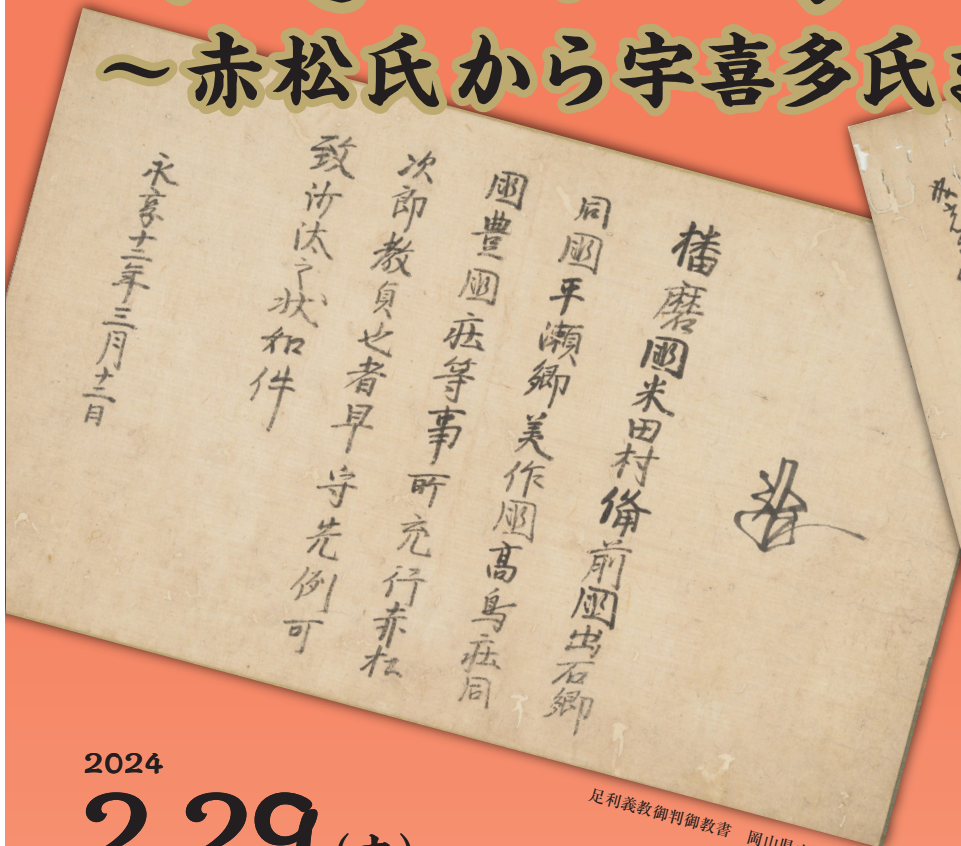 ~赤松氏から宇喜多氏
播磨國米田村備前國出石郷
同國平瀬郷美作國高鳥庄同
國豊國庄等事所充行赤松
次郎教貞也者早守先例可
致沙汰之状如件
永享十二年三月十三日
足利義教御判御教書 岡山県
2024
2.29